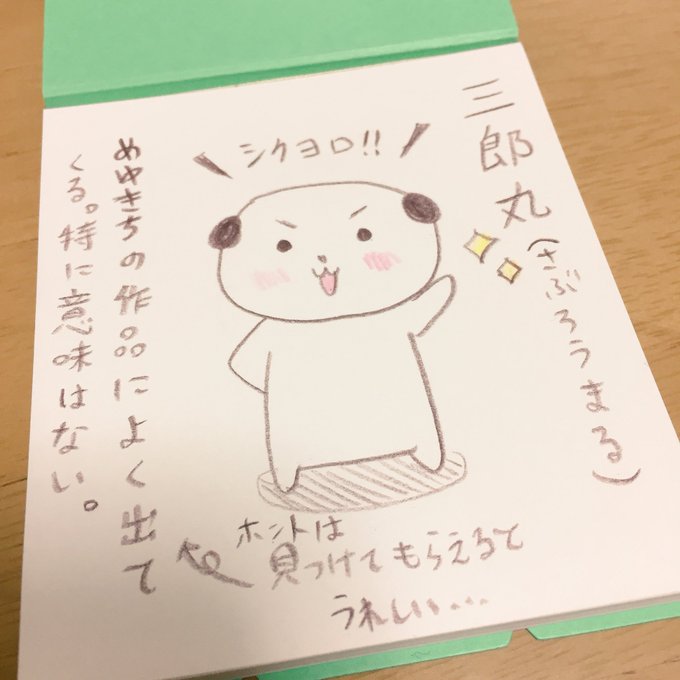 三郎丸
(さぶろうまる)
シクヨロ!!
めゆきちの作品によく出て
くる。特に意味はない。
ホントは
見つけてもらえると
うれしい...